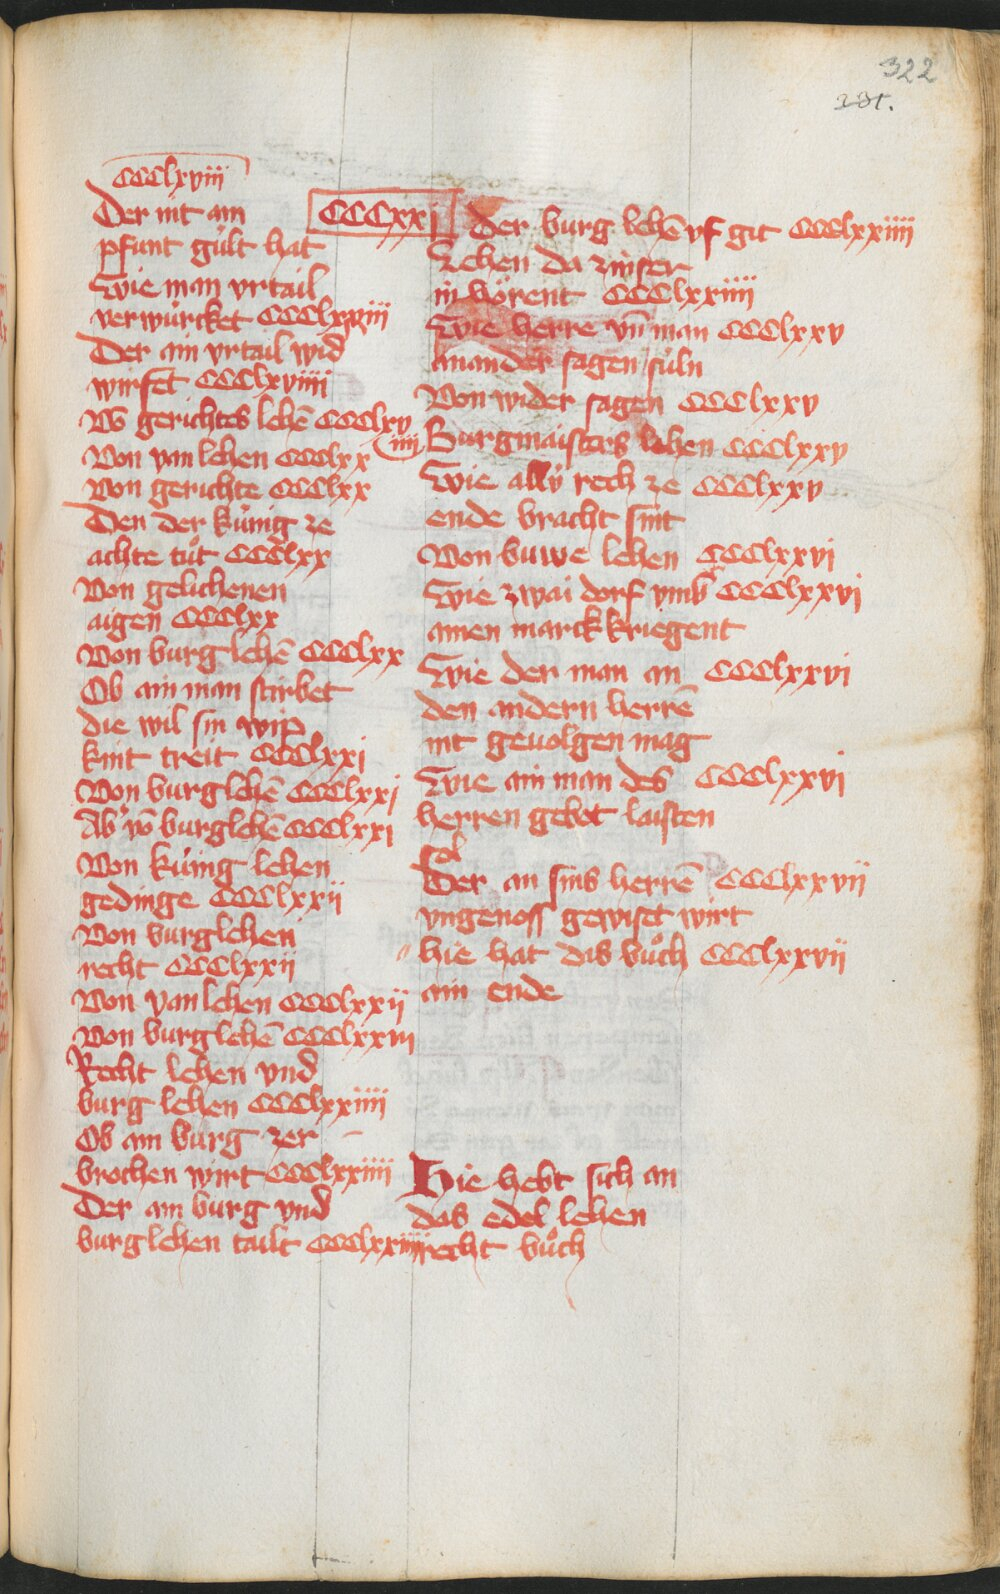 322
231.
CCCxxj
CCClxviii
Der nit ain
pfunt gült hat
Wie man vrtail
verwürcket CCClxviii
Der ain vrtail wid
wirfet CCClxviiii
Vō gerichtes lehē CCClxv
iiii
Von van lehen CCClxx
Von gerichte CCClxx
Den der küng ze
achte tůt CCClxx
Von gelichenen
aigen CCClxx
Von burg lehē CCClxx
Ob ain man stirbet
die wil sin wip
kint treit CCClxxi
Von burg lehē CCClxxj
Ab vō burglehē CCClxxi
Von küng lehen
gedinge CCClxxij
Von burglehen
recht CCClxxij
Von van lehen CCClxxij
Von burg lehē CCClxxiii
Recht lehen vnd
burg lehen CCClxxiiii
Ob ain burg zer
brochen wirt CCClxxiiii
Der ain burg vnd
burg lehen tailt CCClxxiiii
Der burg lehē vf git CCClxxiiii
Lehen da zinser
in hörent CCClxxiiii
Wie herre vn̄ man CCClxxv
ainander sagen süln
Von wider sagen CCClxxv
Burgmaisters lehen CCClxxv
Wie allü rech ze CCClxxv
ende bracht sint
Von buwe lehen CCClxxvi
Wie zwai dorf vmb CCClxxvj
ainen marck kriegent
Wie der man an CCClxxvi
den andern herrē
nit geuolgen mag
Wie ain man des CCClxxvi
herren gebot laisten
sol
Der an sins herrē CCClxxvij
vngenoss gewiset wirt
hie hat das bůch CCClxxvij
ain ende
Hie hebt sich an
das edel lehen
recht bůch